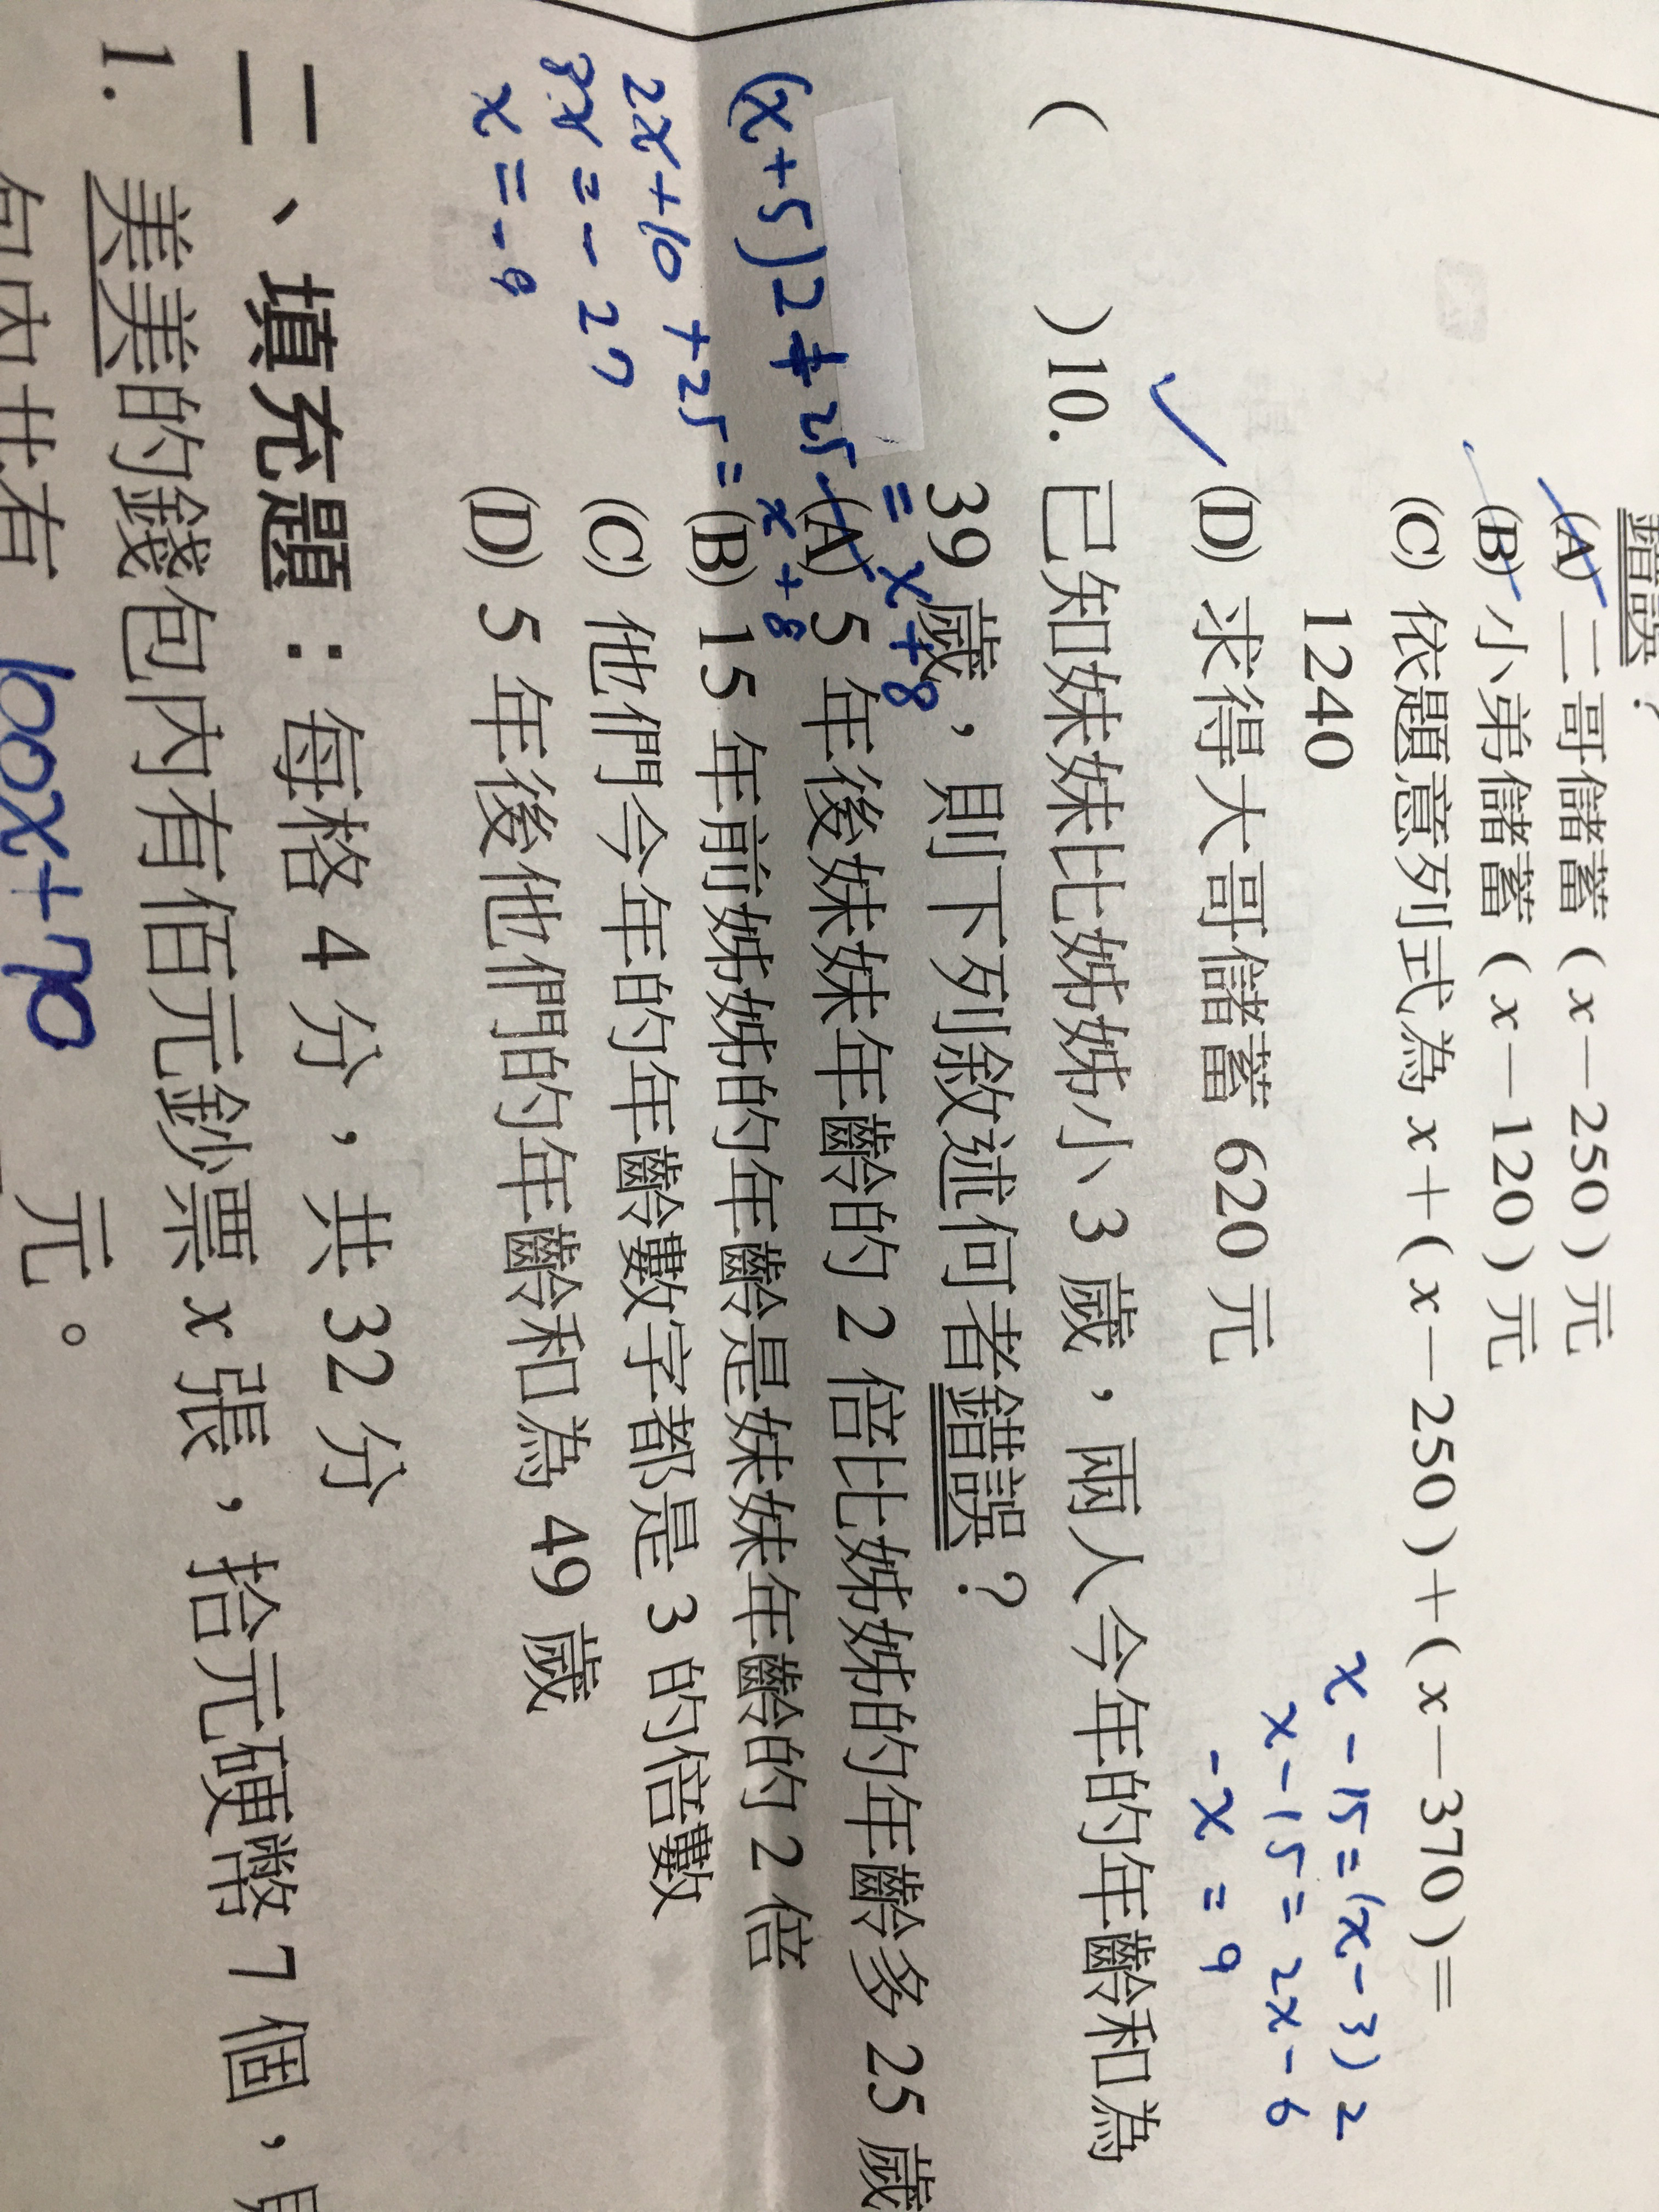 錯誤？
(A) 二哥儲蓄（x－250）元
(B) 小弟儲蓄（x－120）元
(C) 依題意列式為 x＋（x－250）＋（x－370）＝
1240
(D) 求得大哥儲蓄 620 元
x-15=(x-3)2
x-15=2x-6
-x=9
(　　)10. 已知妹妹比姊姊小 3 歲，兩人今年的年齡和為
39 歲，則下列敘述何者錯誤？
(A) 5 年後妹妹年齡的 2 倍比姊姊的年齡多 25 歲
(B) 15 年前姊姊的年齡是妹妹年齡的 2 倍
(C) 他們今年的年齡數字都是 3 的倍數
(D) 5 年後他們的年齡和為 49 歲
(x+5)2+25=x+8
2x+10+25=x+8
x=-27
x=-9
二、填充題：每格 4 分，共 32 分
1. 美美的錢包內有佰元鈔票 x 張，拾元硬幣 7 個，則
包內共有 100x+70 元。